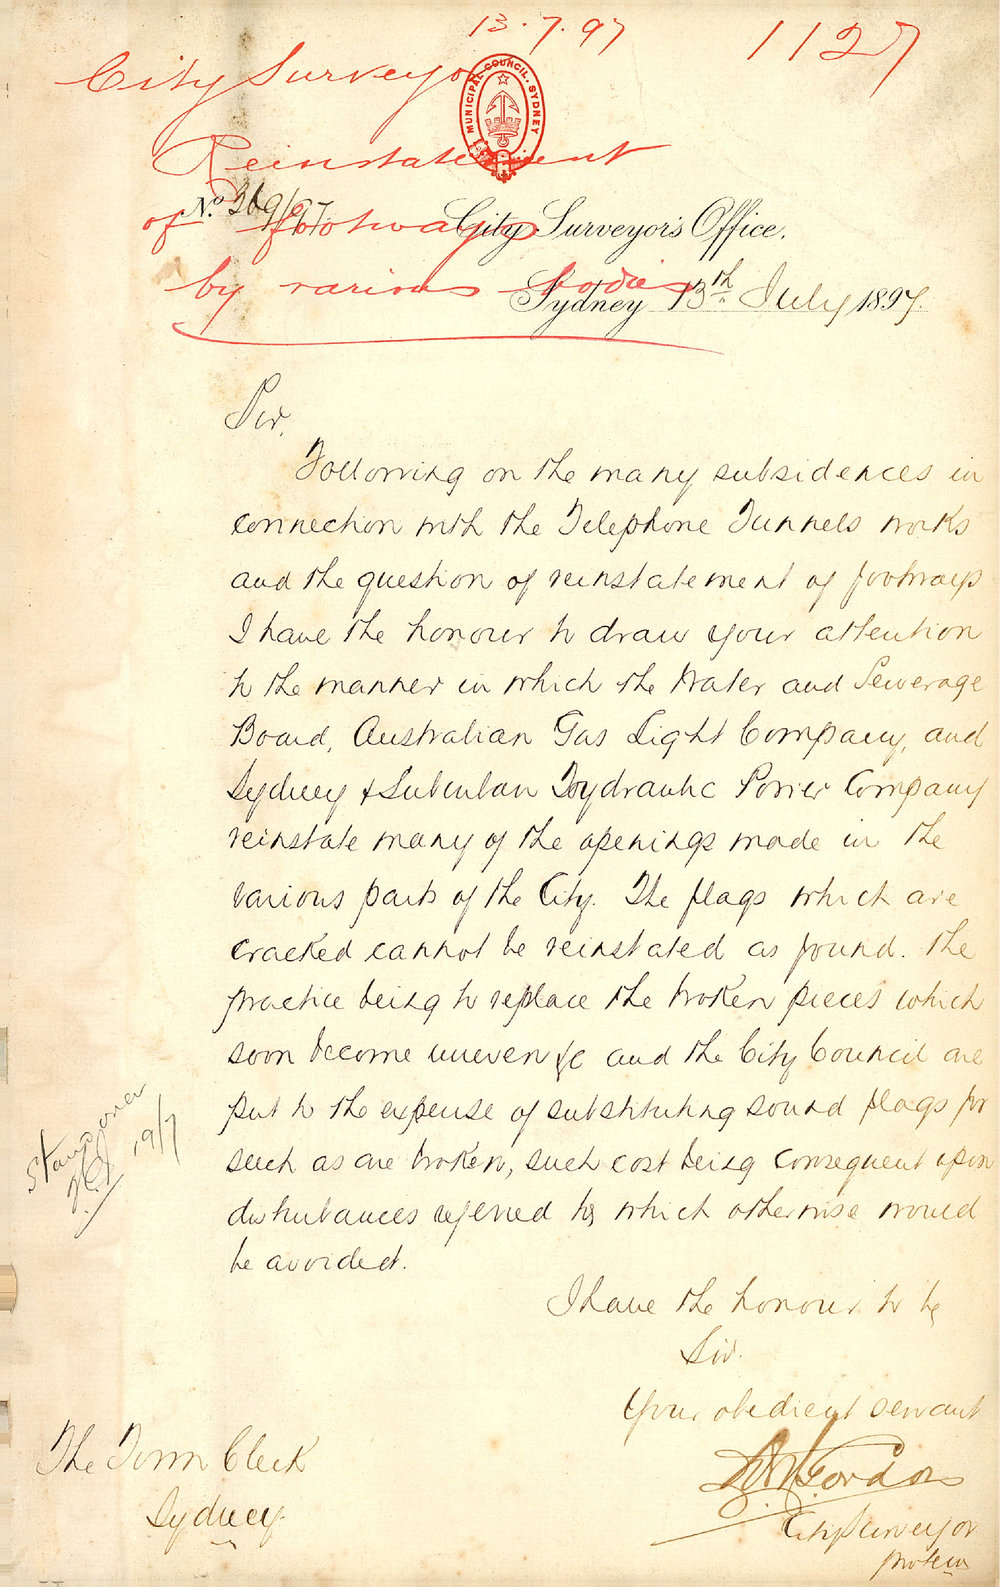 13.7.97
1127
City Surveyor
MUNICIPAL COUNCIL. SYDNEY
Reinstatement
of footways
by various bodies
No. 369/97
City Surveyor's Office.
Sydney 13th July 1897.
Sir,
Following on the many subsidences in
connection with the Telephone Tunnels works
and the question of reinstatement of footways
I have the honour to draw your attention
to the manner in which the Water and Sewerage
Board, Australian Gas Light Company, and
Sydney & Suburban Hydraulic Power Company
reinstate many of the openings made in the
various parts of the City. The flags which are
cracked cannot be reinstated as found. the
practice being to replace the broken pieces which
soon become uneven &c and the City Council are
put to the expense of substituting sound flags for
such as are broken, such cost being consequent upon
disturbances referred to, which otherwise would
be avoided.
I have the honour to be
Sir.
Your obedient servant
Gordon
City Surveyor
pro tem
Stand over
19/7
The Town Clerk
Sydney.